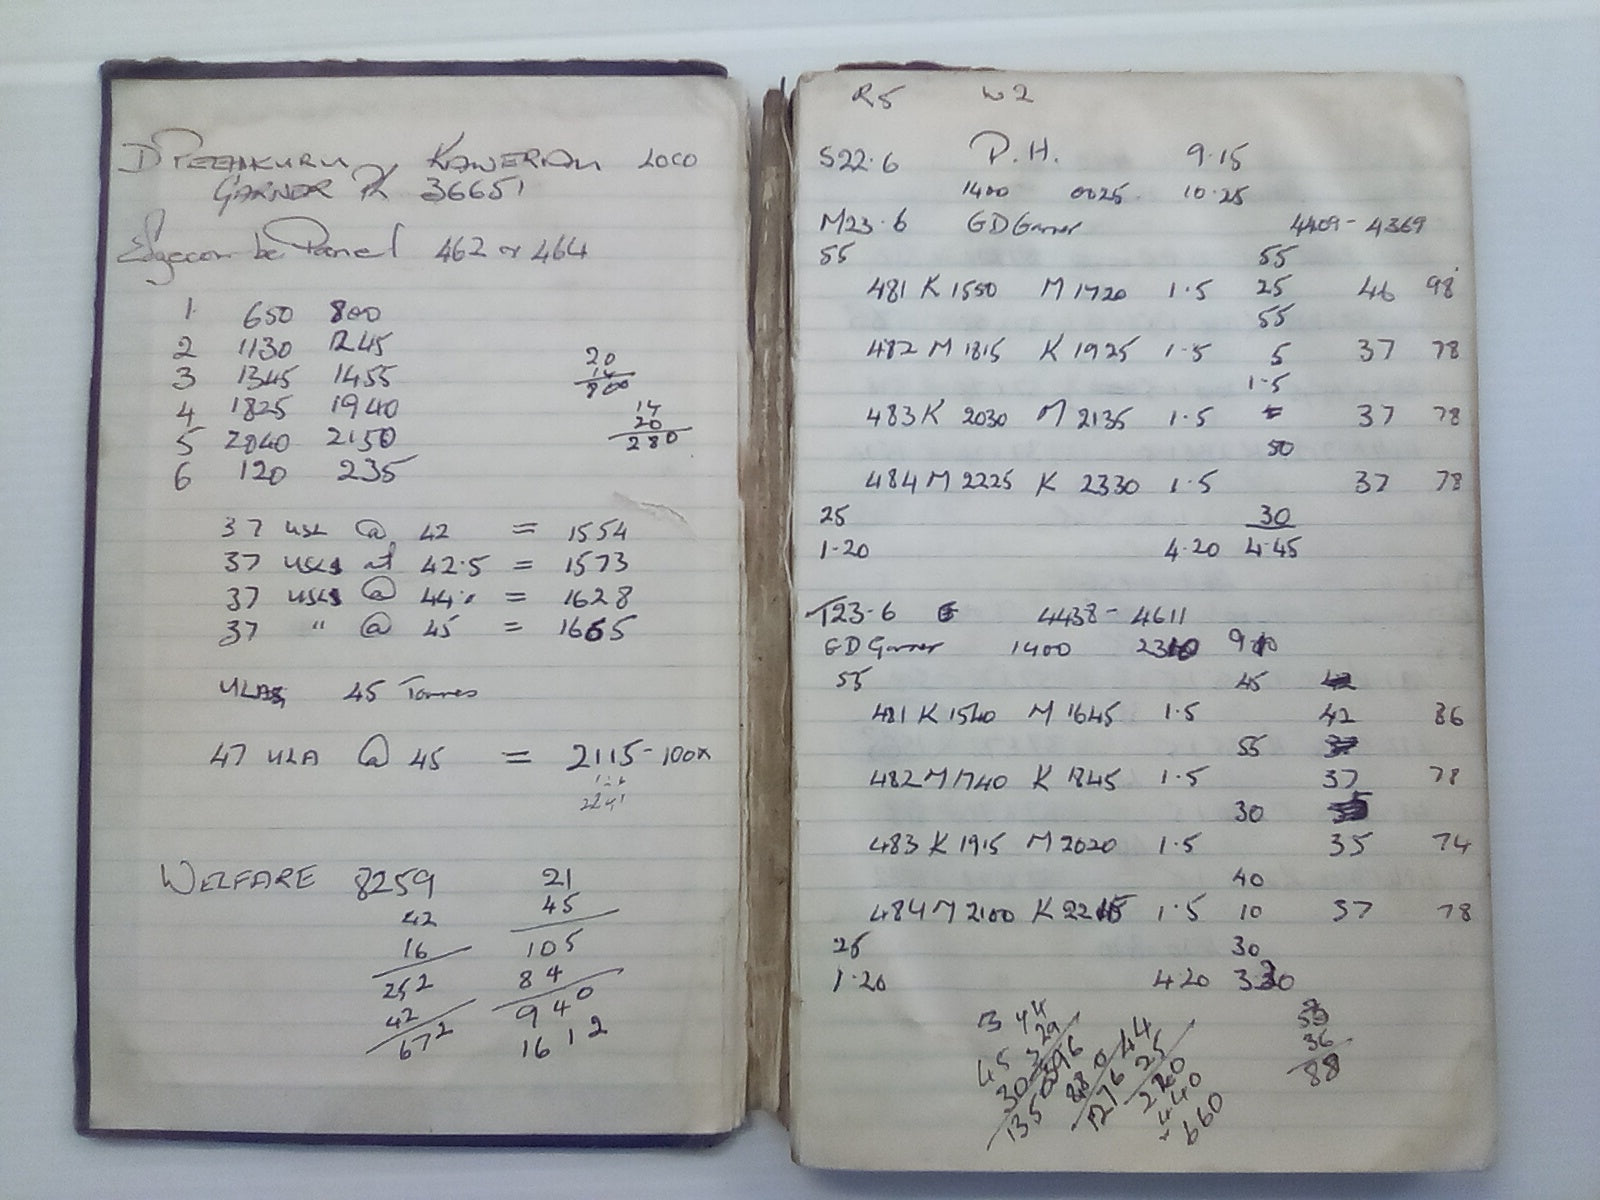 KAWERAU LOCO
GARNOR PK 36651
Edgecombe Panel 462 or 464
1 650 800
2 1130 1245
3 1345 1455
4 1825 1940
5 2040 2150
6 120 235
20
14
800
14
20
280
37 USL @ 42 = 1554
37 USLs at 42.5 = 1573
37 USLs @ 44. = 1628
37 " @ 45 = 1665
ULAs 45 Tonnes
47 ULA @ 45 = 2115-100x
WELFARE 8259
42
16
252
42
672
21
45
105
84
940
1612
R5 W2
S22.6 P.H. 9.15
1400 0025. 10.25
M23.6 GD Garner 4409-4369
55 55
481 K 1550 M 1720 1.5 25 46 98
55
482 M 1815 K 1925 1.5 5 37 78
1.5
483 K 2030 M 2135 1.5 37 78
50
484 M 2225 K 2330 1.5 37 78
25 30
1.20 4.20 4.45
T23.6 4438-4611
GD Garner 1400 2310 910
55 45
481 K 1540 M 1645 1.5 42 86
55
482 M 1740 K 1845 1.5 37 78
30
483 K 1915 M 2020 1.5 35 74
40
484 M 2100 K 2215 1.5 10 37 78
25 30
1.20 4.20 3.30
44
25
220
440
660
36
88